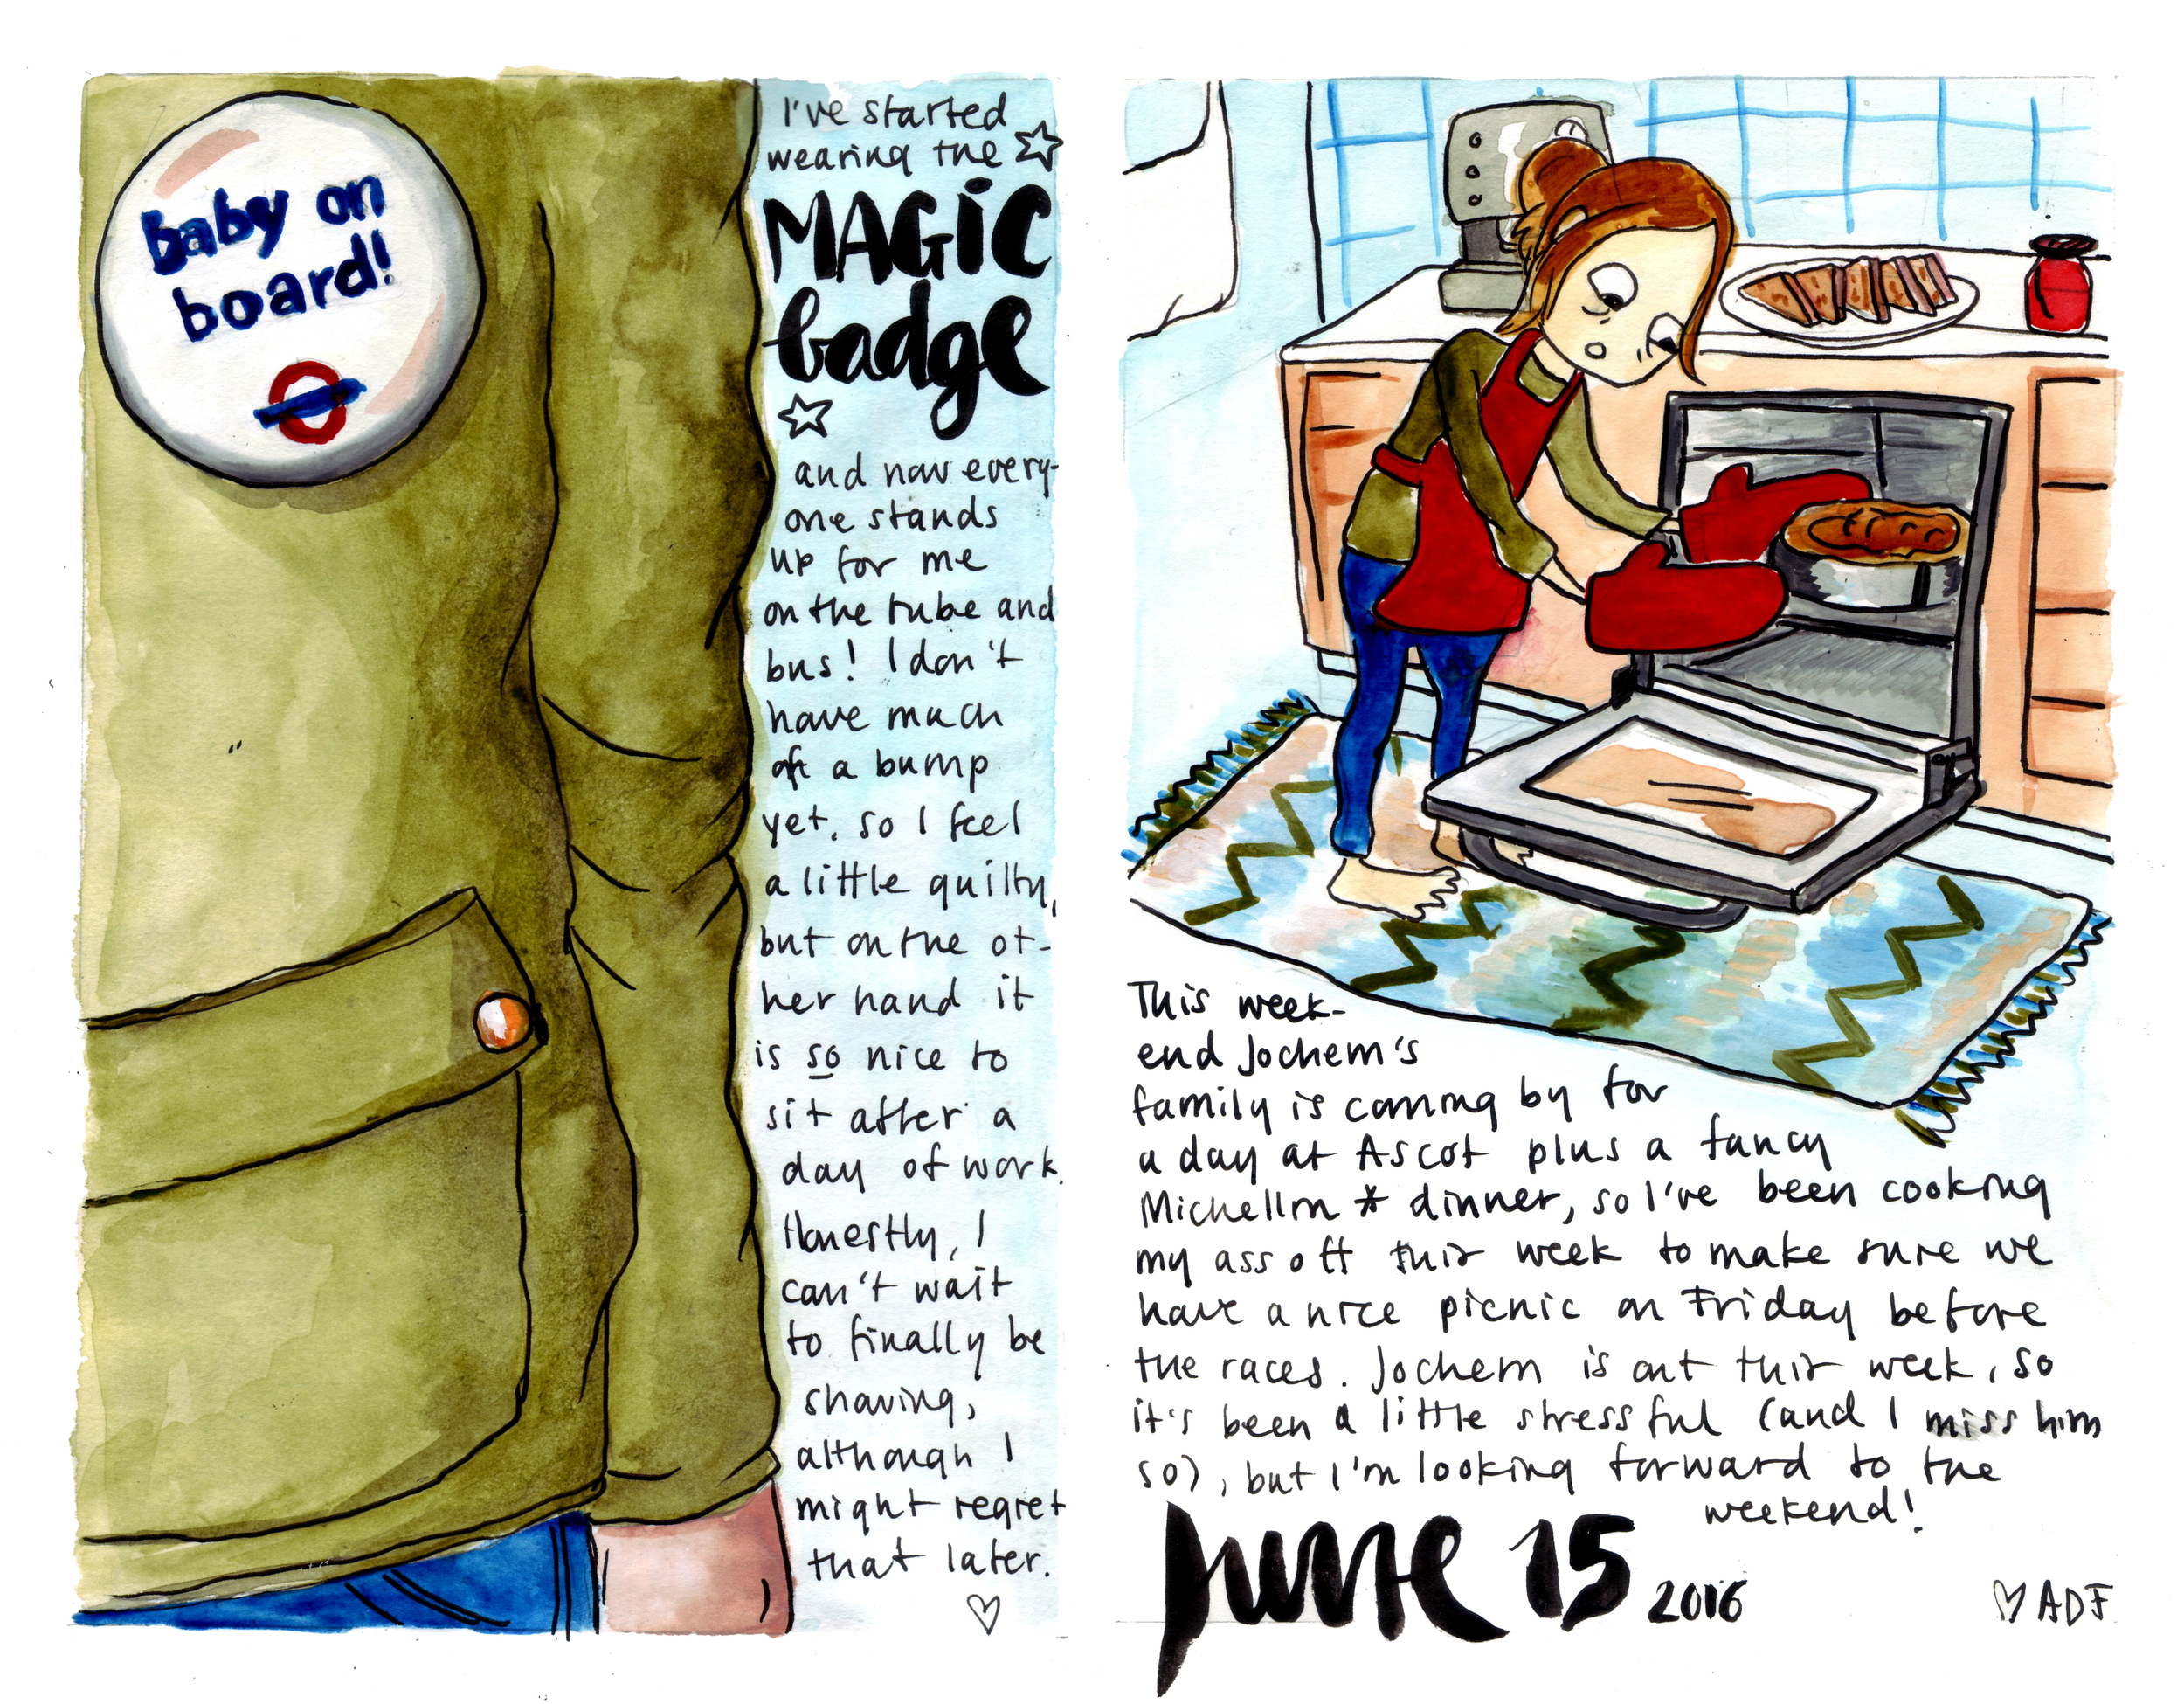 baby on
board!
I've started
wearing the
MAGIC
badge
and now every-
one stands
up for me
on the tube and
bus! I don't
have much
of a bump
yet, so I feel
a little guilty,
but on the ot-
her hand it
is so nice to
sit after a
day of work.
Honestly, I
can't wait
to finally be
showing,
although I
might regret
that later.
This week-
end Jochem's
family is coming by for
a day at Ascot plus a fancy
Michellin * dinner, so I've been cooking
my ass off this week to make sure we
have a nice picnic on Friday before
the races. Jochem is out this week, so
it's been a little stressful (and I miss him
so), but I'm looking forward to the
weekend!
June 15 2016
♡ ADF